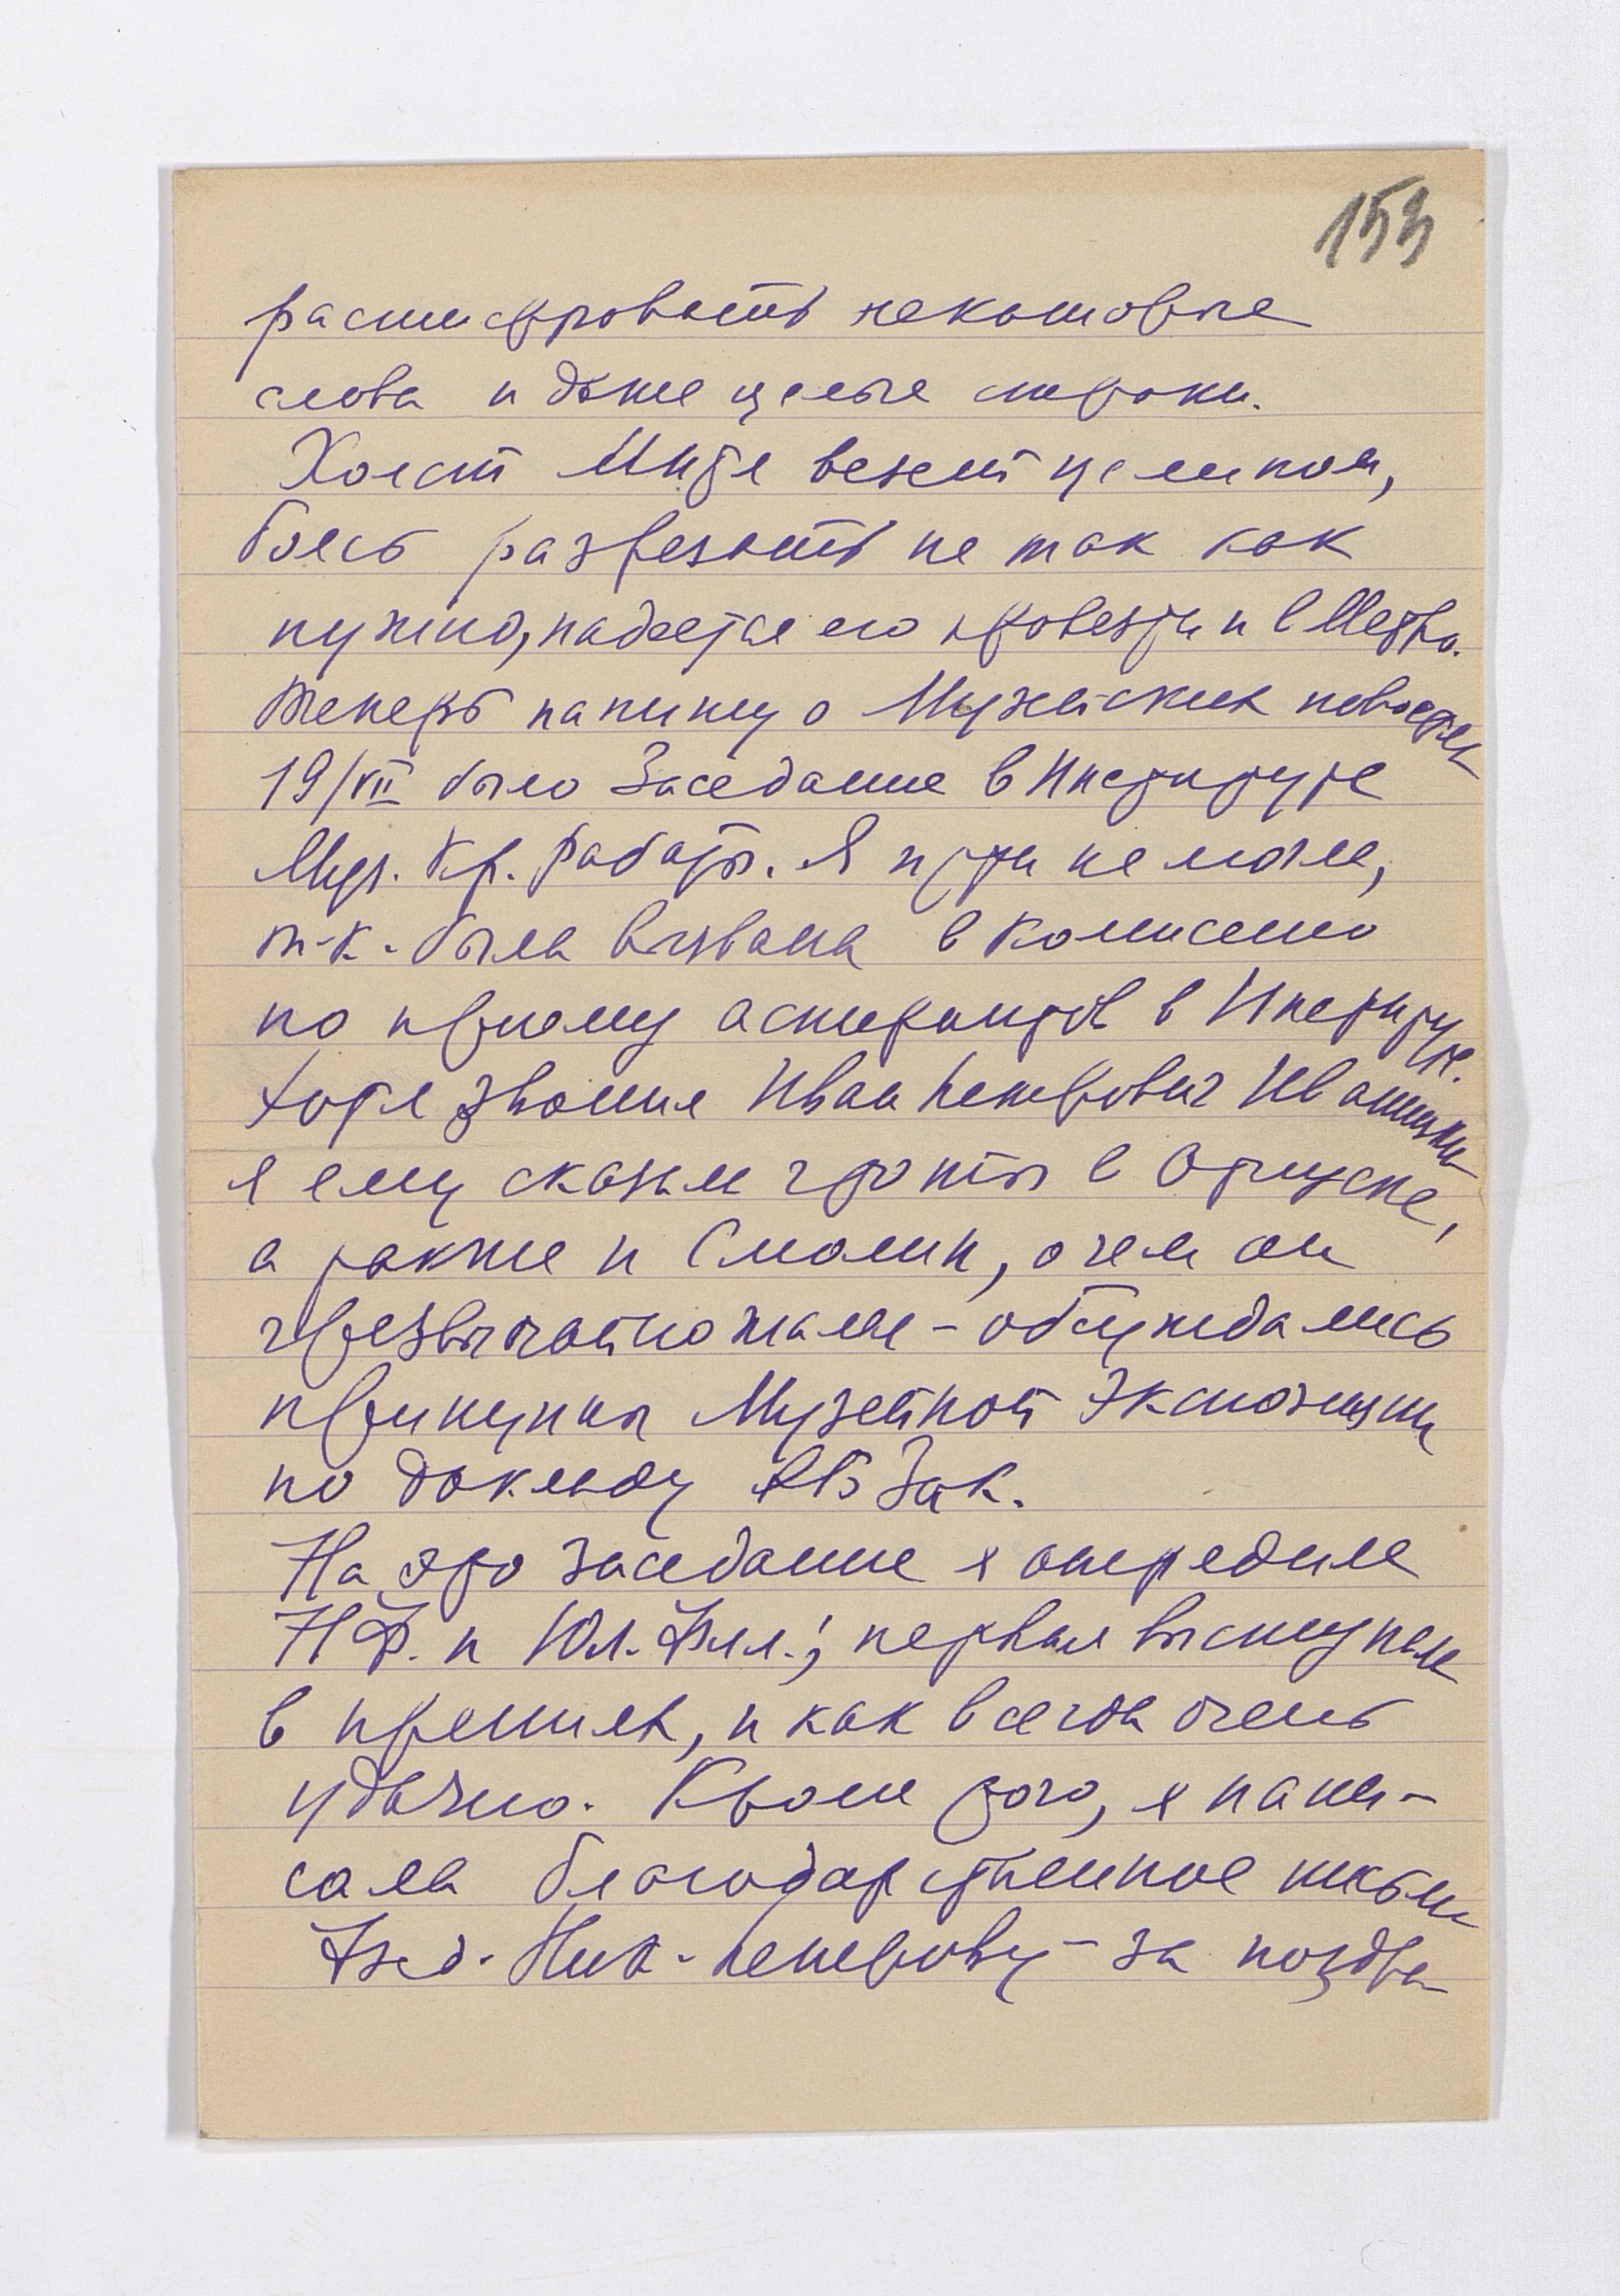 153
расшифровать некоторые
слова и даже целые строки.
Холст Митя везет целиком,
боясь разрезать не так как
нужно, надеется его провезти и в
Теперь напишу о Музейских новостях
19/VII было Заседание в Институте
Муз. Кр. работы. Я пойти не могла,
т-к. была вызвана в комиссию
по приему аспирантов в Институте.
Хотя звонил Иван Петрович
я ему сказала что ты в Отпуске,
а также и Смолин, о чем он
чрезвычайно жалел – обсуждались
принципы Музейной Экспозиции
по докладу АБ Зак.
На это заседание я
НФ. и Юл. ; первая выступала
в прениях, и как всегда очень
удачно. Кроме того, я напи-
сала благодарственное письмо
Ник. Петрову – за поздра